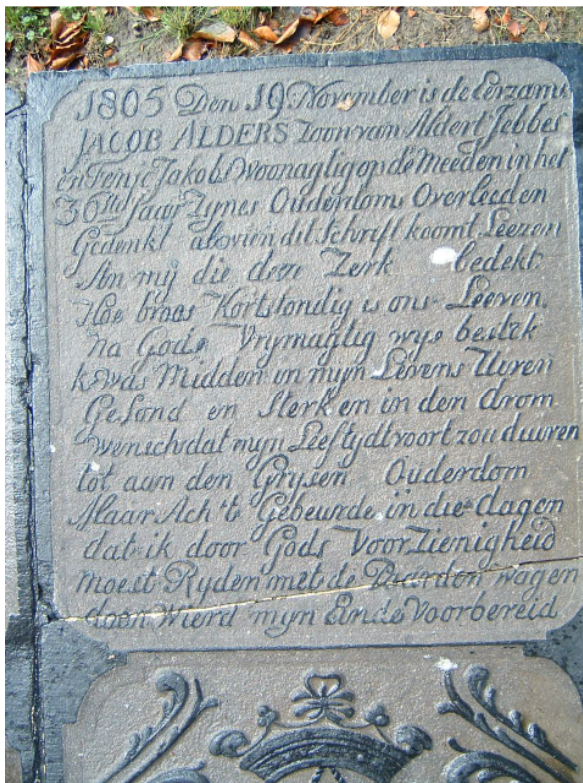 1805 Den 19 November is de Eerzame
JACOB ALDERS Zoon van Aldert Jebbes
en Jakobs Woonagtig op de Meeden in het
36ste Jaar Zynes Ouderdoms Overleeden
Gedenkt al dit Schrift koomt Leezen
An my die deze Zerk bedekt
Hoe broos Kortstondig is ons Leeven
na Gods Vrymagtig wys bestek
k was Midden in myn Levens Uuren
Gesond en Sterk en in den drom
wensch dat myn Leeftydt voort zou duuren
tot aan den Grysen Ouderdom
Maar Ach 't Gebeurde in die dagen
dat ik door Gods VoorZienigheid
moest Ryden met de Paarden wagen
doen Wierd myn Einde Voorbereid